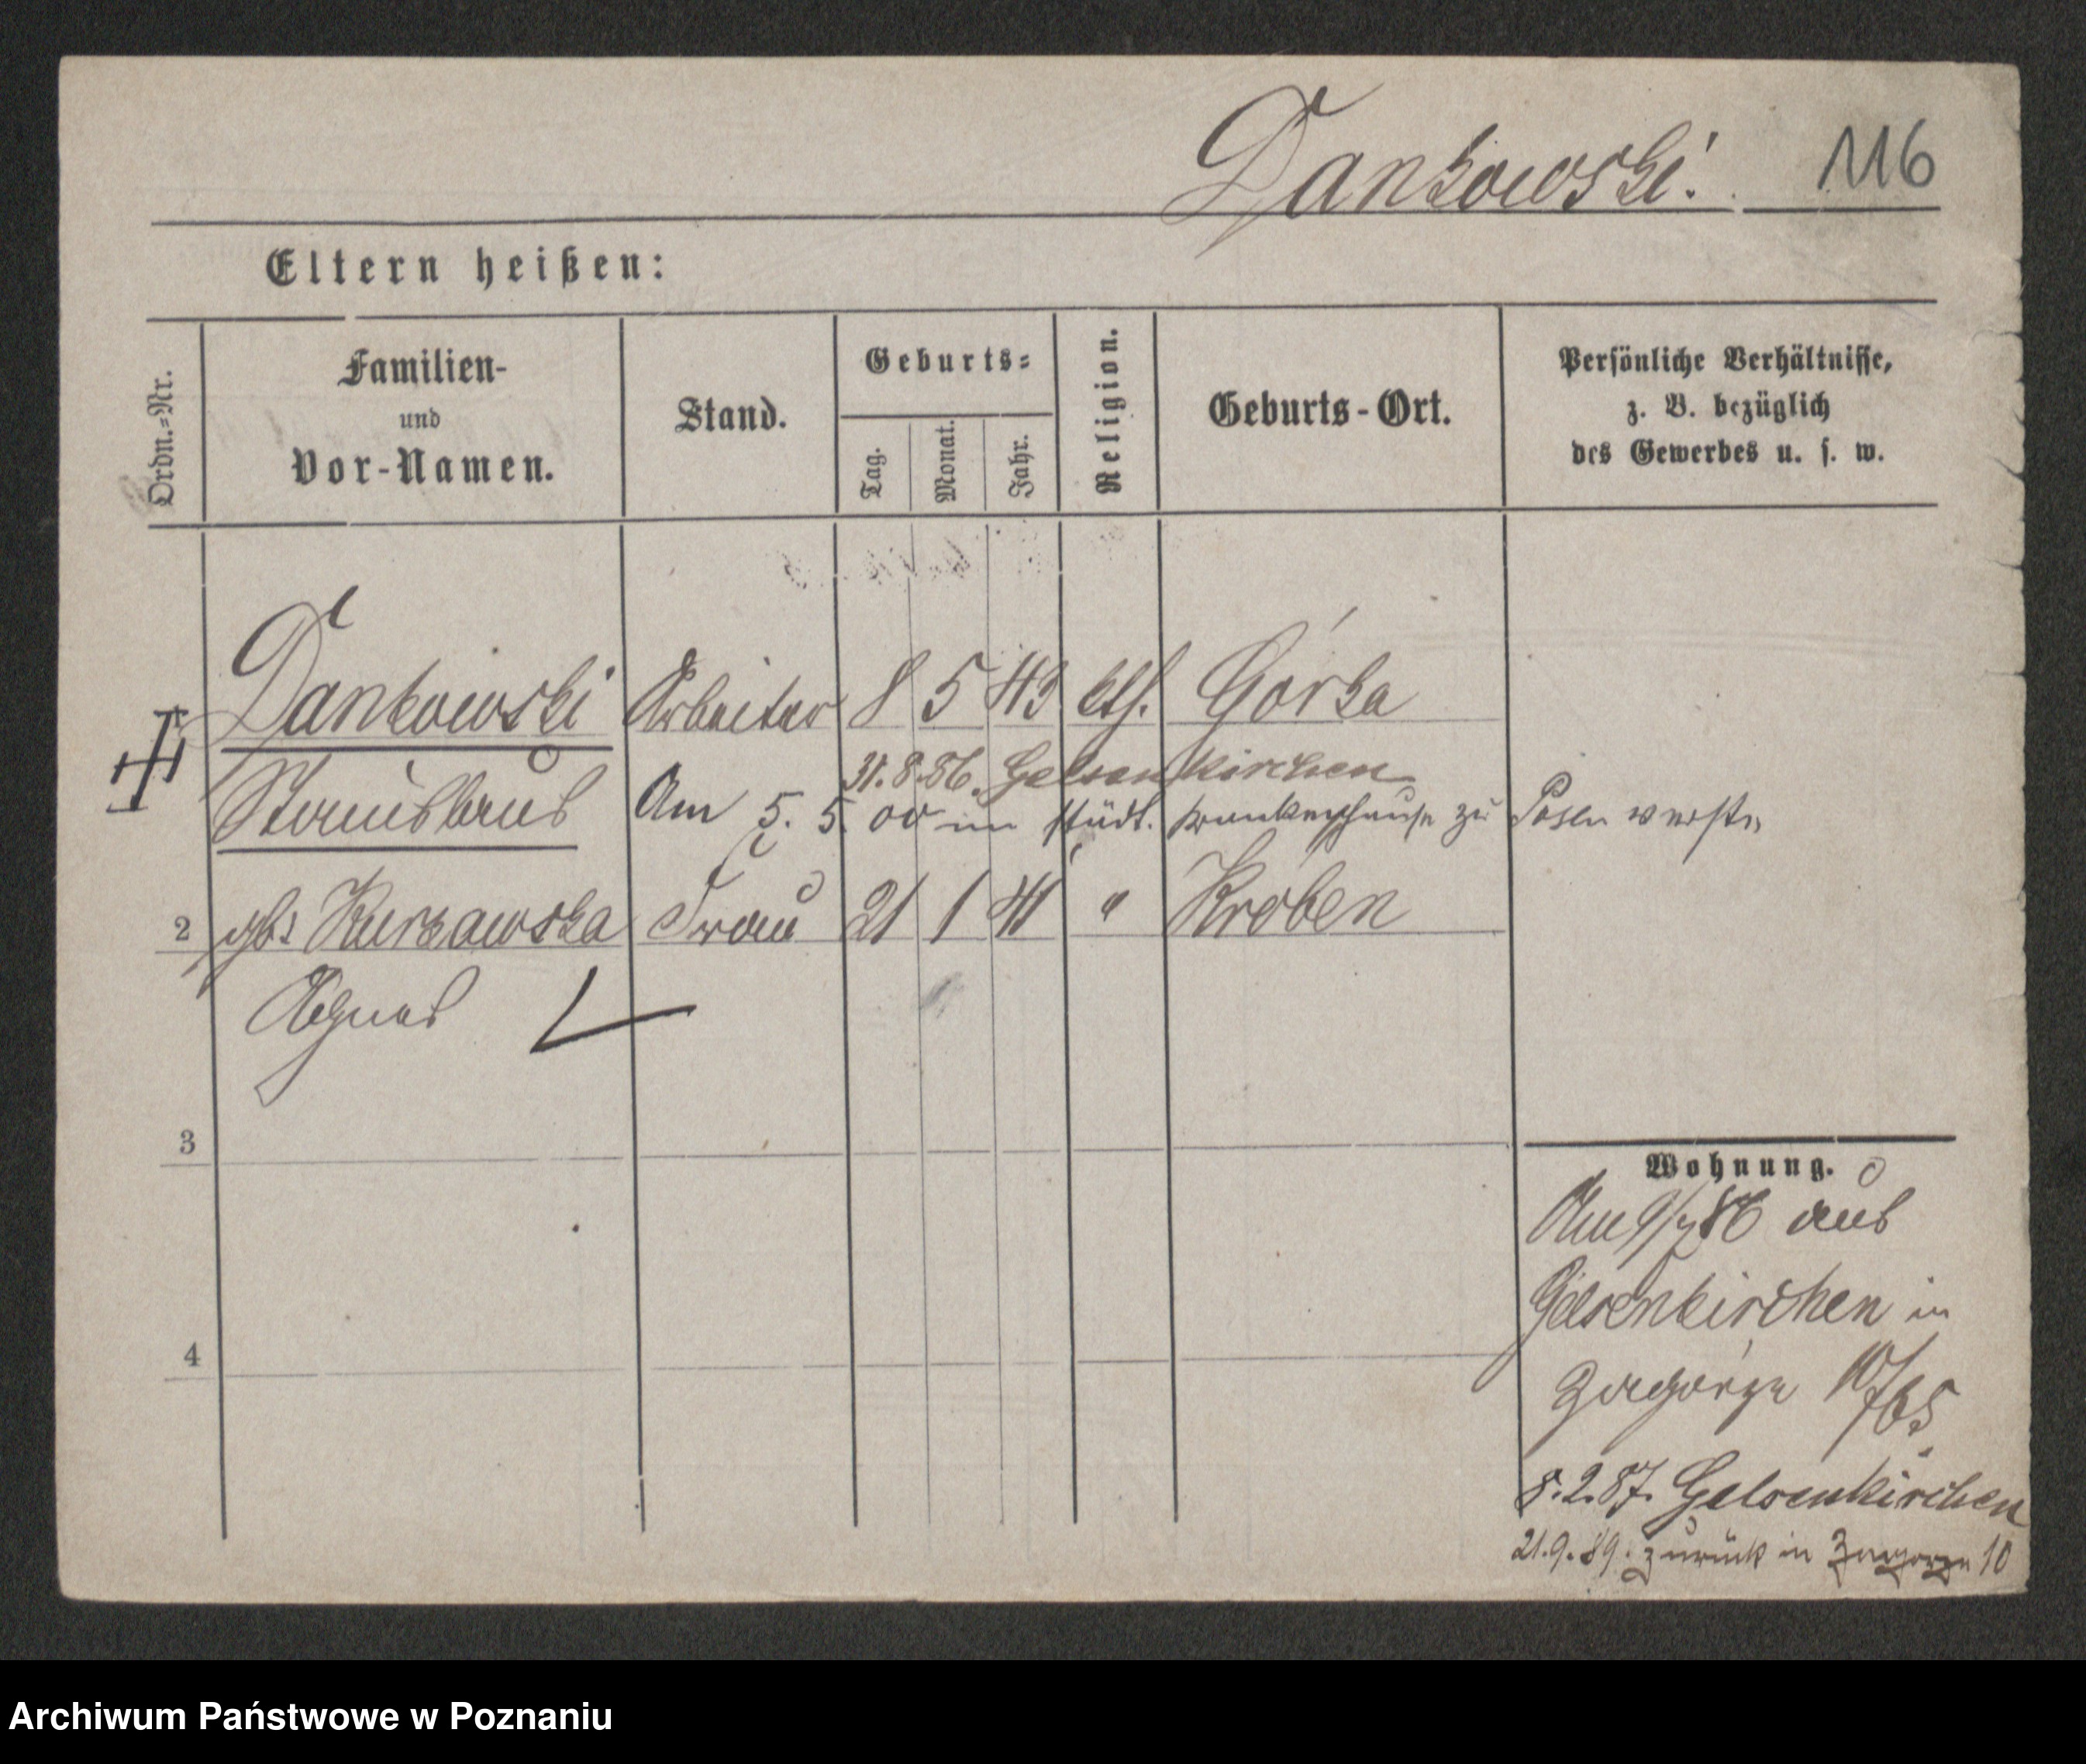 Dankowski. 116
Eltern heißen:
Ordn.-Nr.
Familien-
und
Vor-Namen.
Stand.
Geburts-
Tag.
Monat.
Jahr.
Religion.
Geburts-Ort.
Persönliche Verhältnisse,
z. B. bezüglich
des Gewerbes u. s. w.
Dankowski Arbeiter 8 5 43 kth. Górka
31.8.86. Gelsenkirchen
Stanislaus Am 5. 5. 00 im städt. Krankenhause zu Posen verst.
2 gb. Kurzawska Frau 21 1 41 " Kröben
Agnes
3
4
Wohnung.
Am 9/7 86 aus
Gelsenkirchen in
Zagórze 10/65
8.2.87. Gelsenkirchen
21.9.89. zurück in Zagorze 10
Archiwum Państwowe w Poznaniu